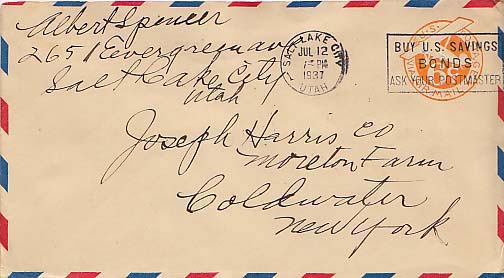 Albert Spencer
2651 Evergreen av
Salt Lake City
Utah
SALT LAKE CITY
JUL 12
PM
1937
UTAH
BUY U.S. SAVINGS
BONDS
ASK YOUR POSTMASTER
Joseph Harris Co
Moreton Farm
Coldwater
New York